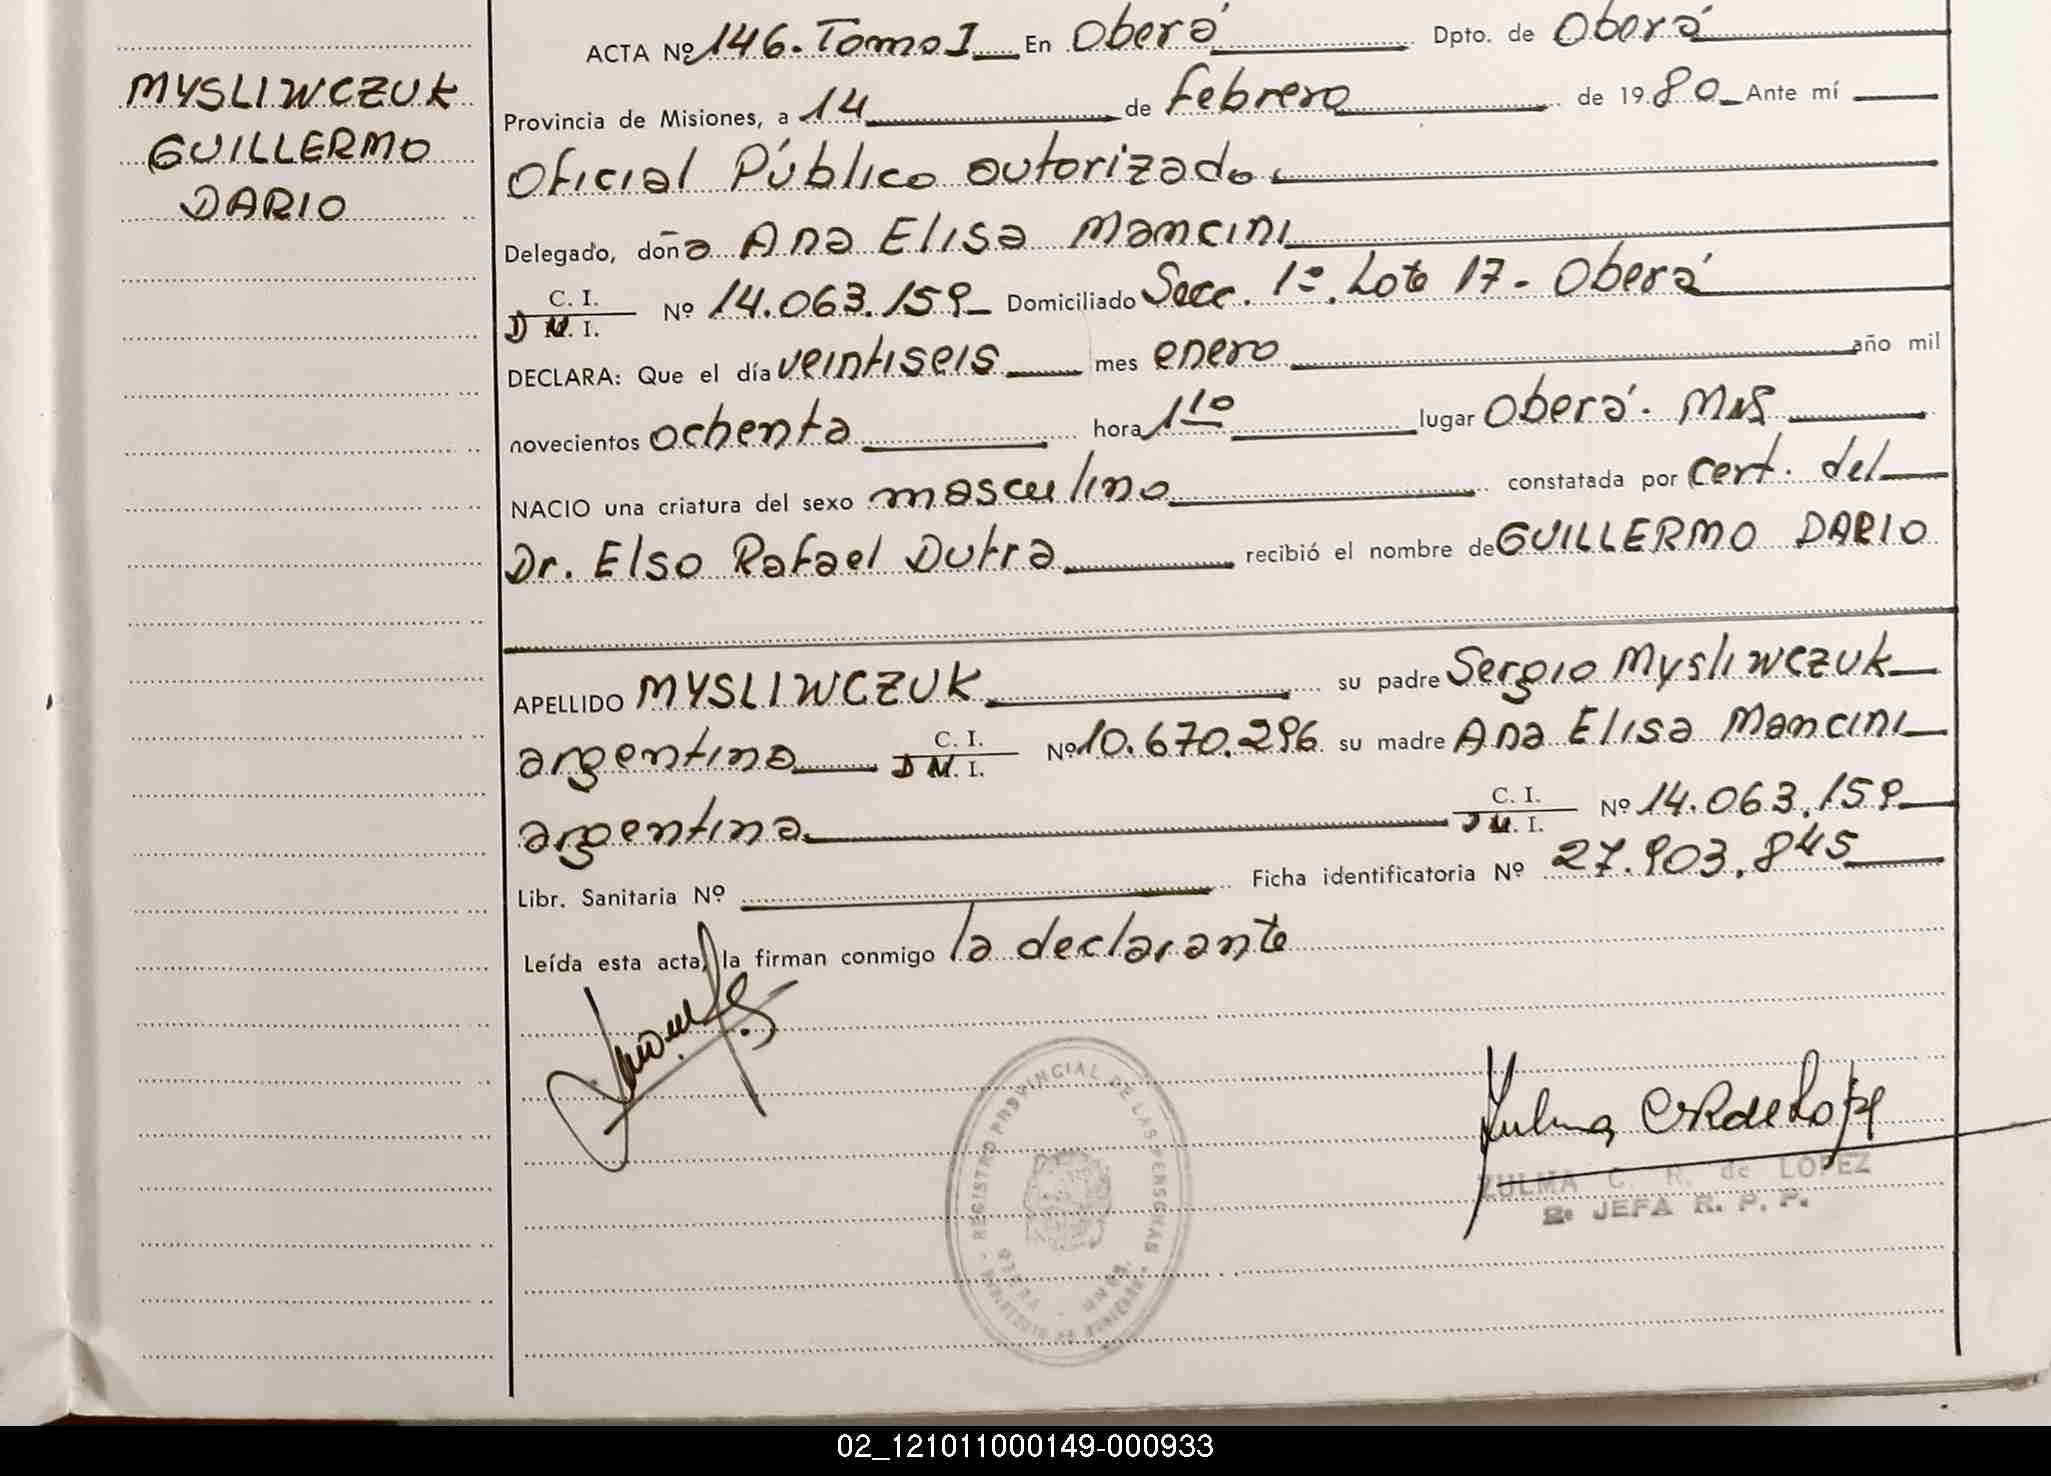 MYSLIWCZUK
GUILLERMO
DARIO
ACTA Nº 146. Tomo I En Oberá Dpto. de Oberá
Provincia de Misiones, a 14 de febrero de 1980 Ante mí
Oficial Público autorizado
Delegado, doña Ana Elisa Mancini
C. I.
D M. I. Nº 14.063.159 Domiciliado Secc. 1º. Lote 17 - Oberá
DECLARA: Que el día veintiseis mes enero año mil
novecientos ochenta hora 1¹⁰ lugar Oberá. Mns
NACIO una criatura del sexo masculino constatada por cert. del
Dr. Elso Rafael Dutra recibió el nombre de GUILLERMO DARIO
APELLIDO MYSLIWCZUK su padre Sergio Mysliwczuk
argentino C. I. D M. I. Nº 10.670.296 su madre Ana Elisa Mancini
argentina C. I. D M. I. Nº 14.063.159
Libr. Sanitaria Nº Ficha identificatoria Nº 27.903.845
Leída esta acta, la firman conmigo la declarante
REGISTRO PROVINCIAL DE LAS PERSONAS
Zulma C R de Lopez
ZULMA C. R. de LOPEZ
2º JEFA R. P. P.
02_121011000149-000933